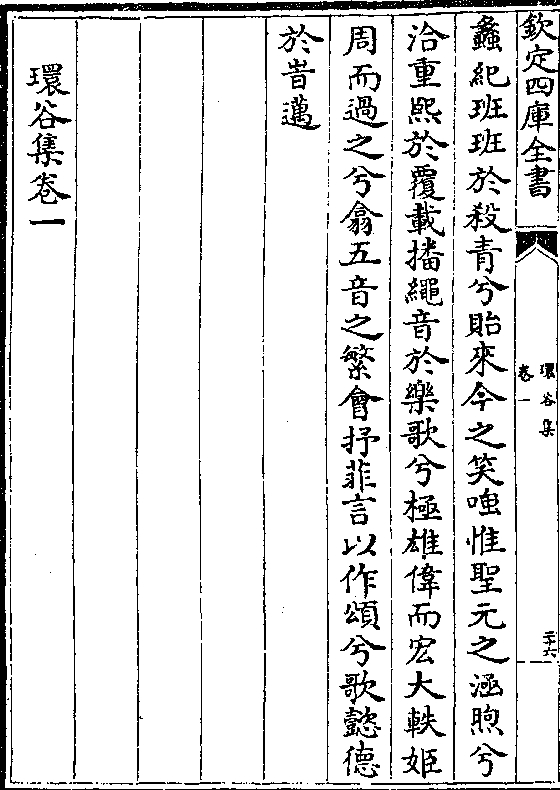 欽定四庫全書
環谷集
卷一
二十六
蠡紀班班於殺青兮貽來今之笑嗤惟聖元之涵煦兮
洽重熙於覆載播繩音於樂歌兮極雄偉而宏大軼姬
周而過之兮翕五音之繁會抒菲言以作頌兮歌懿德
於旹邁
環谷集卷一